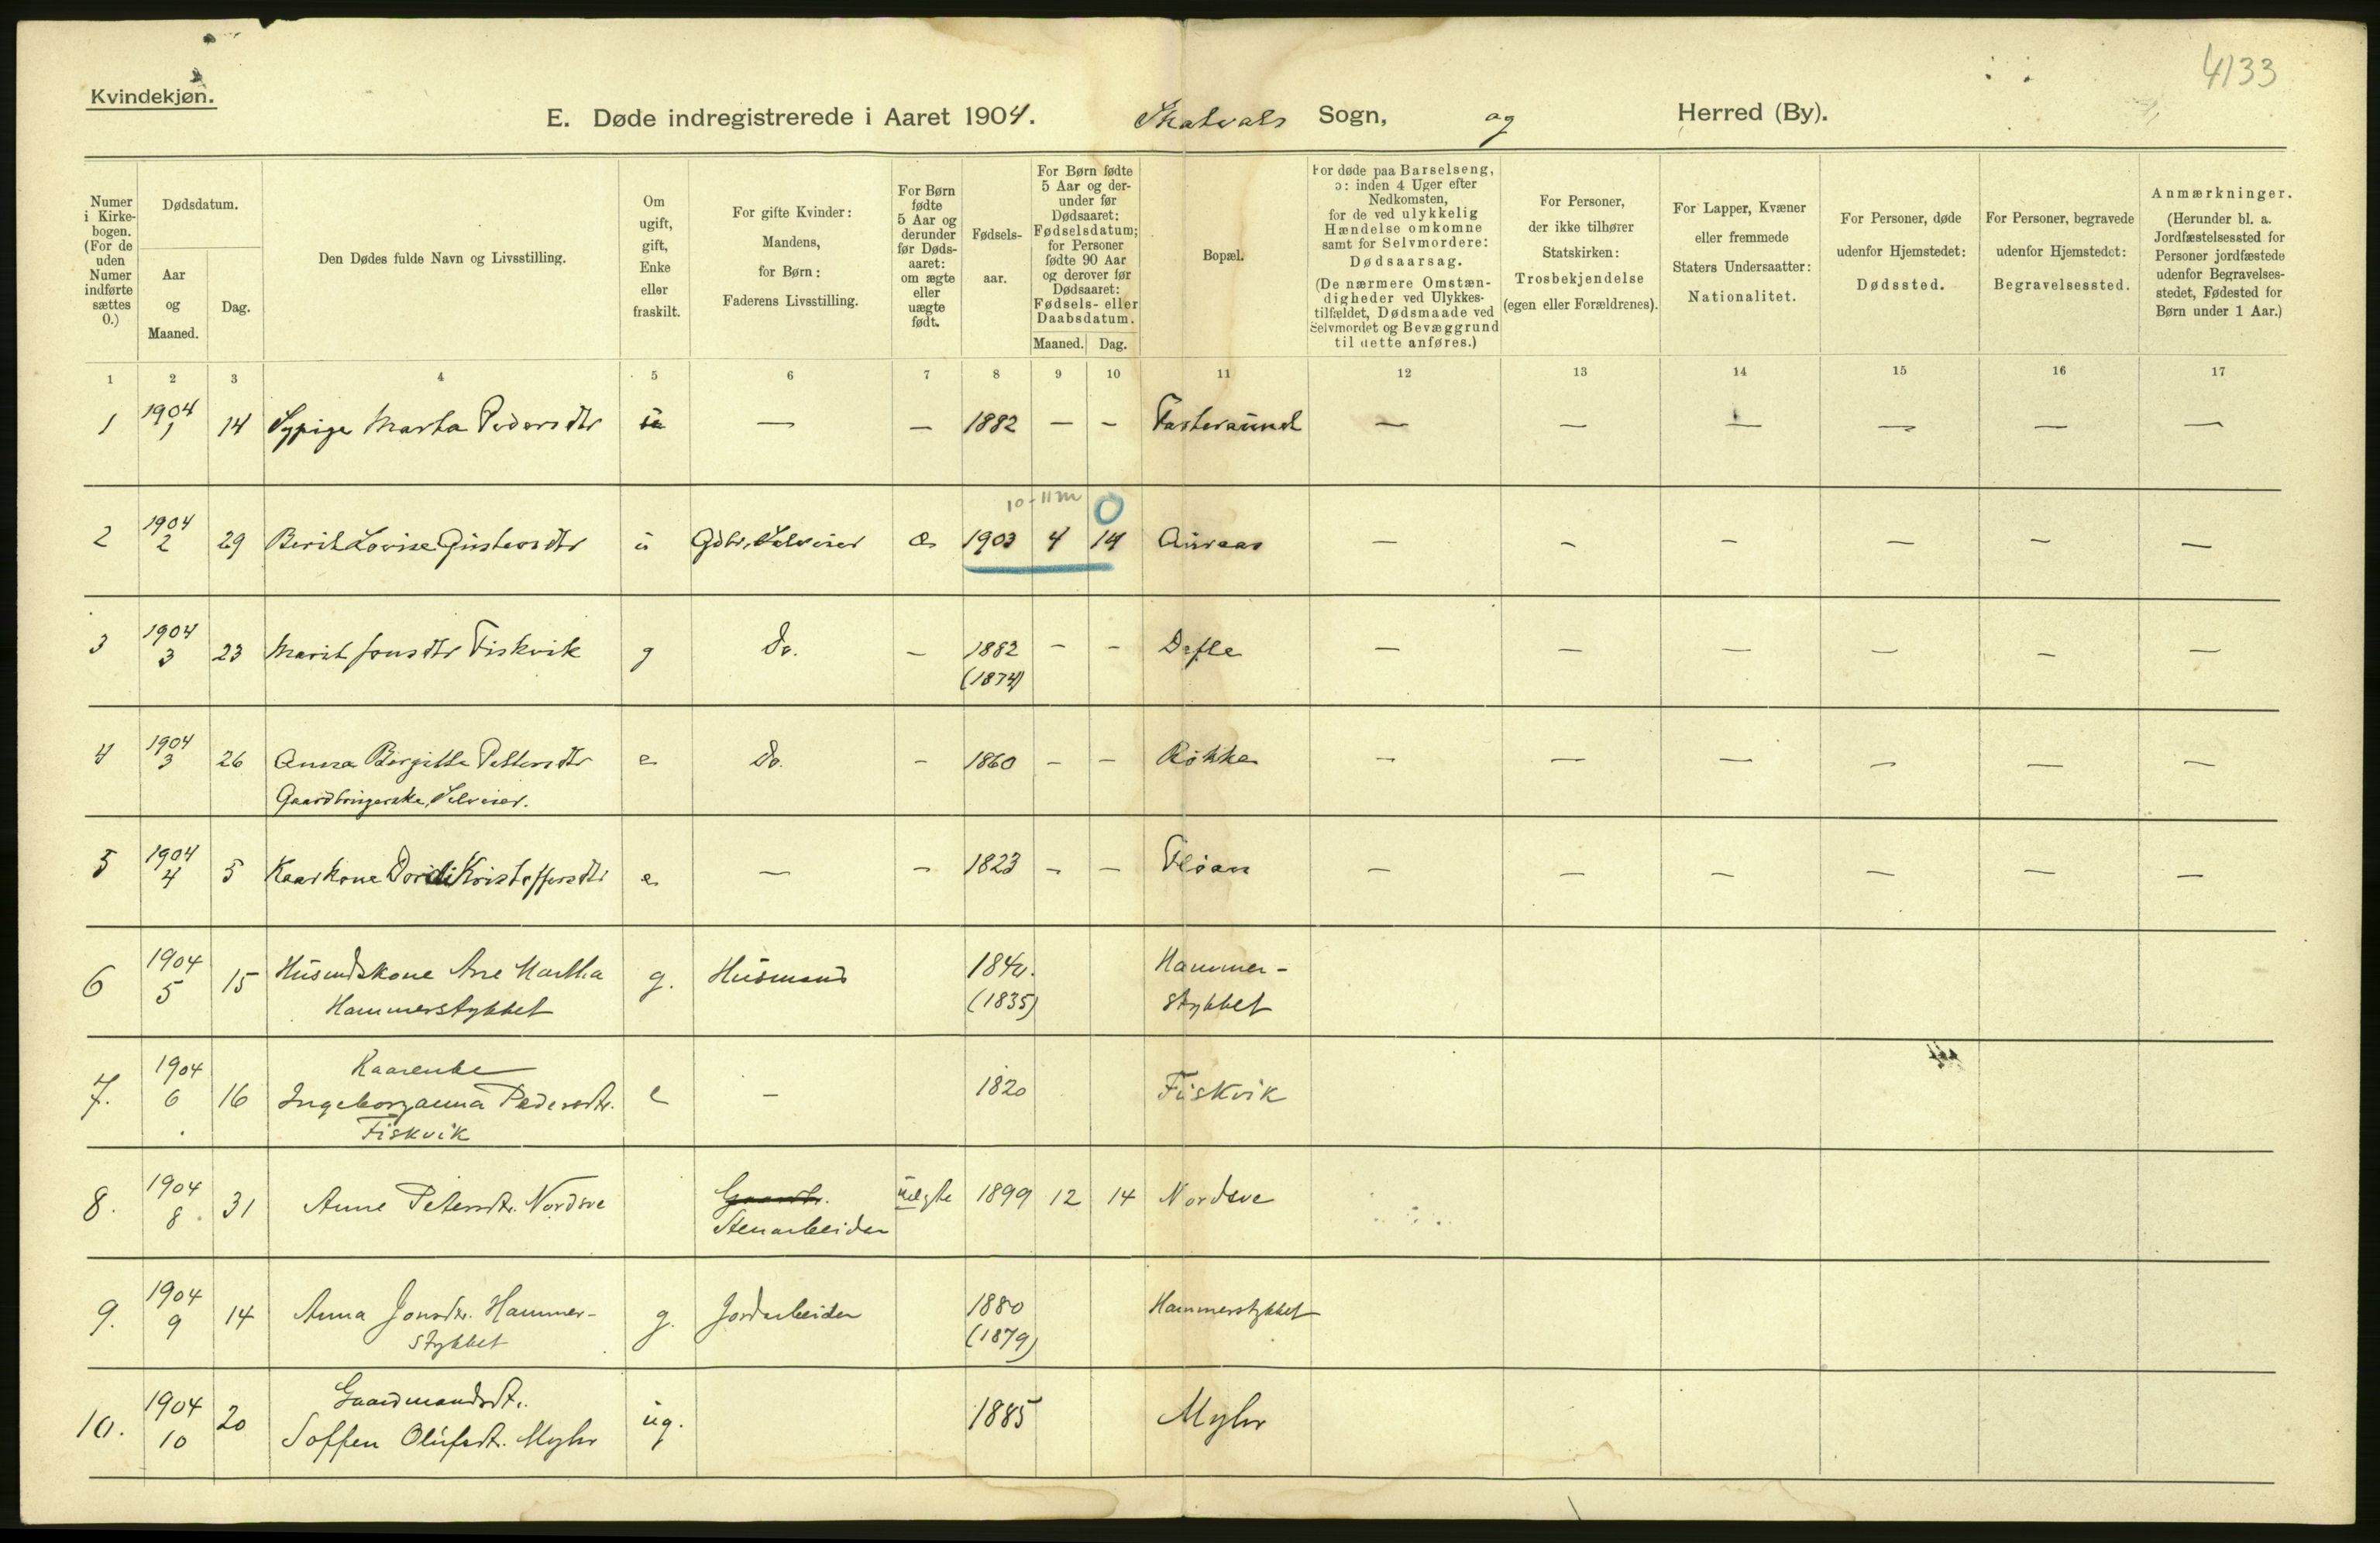 4133
Kvindekjøn.
E. Døde indregistrerede i Aaret 1904. Skatvals Sogn, og Herred (By).
Numer i Kirkebogen. (For de uden Numer indførte sættes 0.)
Dødsdatum.
Aar og Maaned.
Dag.
Den Dødes fulde Navn og Livsstilling.
Om ugift, gift, Enke eller fraskilt.
For gifte Kvinder: Mandens, for Børn: Faderens Livsstilling.
For Børn fødte 5 Aar og derunder før Dødsaaret: om ægte eller uægte født.
Fødselsaar.
For Børn fødte 5 Aar og derunder før Dødsaaret: Fødselsdatum; for Personer fødte 90 Aar og derover før Dødsaaret: Fødsels- eller Daabsdatum.
Maaned. Dag.
Bopæl.
For døde paa Barselseng, ɔ: inden 4 Uger efter Nedkomsten, for de ved ulykkelig Hændelse omkomne samt for Selvmordere: Dødsaarsag.
(De nærmere Omstændigheder ved Ulykkestilfældet, Dødsmaade ved Selvmordet og Bevæggrund til dette anføres.)
For Personer, der ikke tilhører Statskirken: Trosbekjendelse (egen eller Forældrenes).
For Lapper, Kvæner eller fremmede Staters Undersaatter: Nationalitet.
For Personer, døde udenfor Hjemstedet: Dødssted.
For Personer, begravede udenfor Hjemstedet: Begravelsessted.
Anmærkninger. (Herunder bl. a. Jordfæstelsessted for Personer jordfæstede udenfor Begravelsesstedet, Fødested for Børn under 1 Aar.)
1 2 3 4 5 6 7 8 9 10 11 12 13 14 15 16 17
1 1904 1 14 Sypige Marta Pedersdtr — — 1882 — — — — — — — —
10-11 m 0
2 1904 2 29 Berit Lovise Gustavsdtr u Gdbr, Selveier æ 1903 4 14 Auraas — — — — — —
3 1904 3 23 Marit Jonsdtr Fiskvik g Do. — 1882 — — — — — — — —
(1874)
4 1904 3 26 Anna Birgitte Pettersdtr e Do. — 1860 — — Røkke — — — — — —
Gaardbrugerske, Selveier.
5 1904 4 5 Kaarkone Dordi Kristoffersdtr e — — 1823 — — Fløan — — — — — —
6 1904 5 15 Husmdskone Ane Martha g. Husmand 1840. Hammer-
Hammerstykket (1835) stykket
Kaarenke
7. 1904 6 16 Ingeborganna Pedersdtr. e — 1820 Fiskvik
Fiskvik
8. 1904 8 31 Anne Petersdtr. Nordsve Gaardbr. uægte 1899 12 14 Nordsve
Stenarbeider
9. 1904 9 14 Anna Jonsdtr. Hammer- g. Jordarbeider 1880 Hammerstykket
stykket (1879)
Gaardmandsdt.
10. 1904 10 20 Soffen Olufsdt. Myhr ug. 1885 Myhr